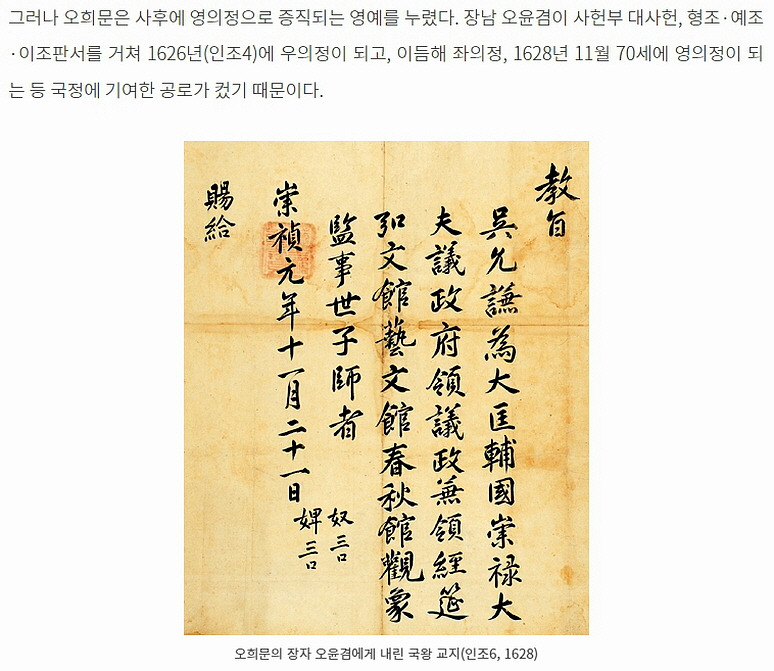 그러나 오희문은 사후에 영의정으로 증직되는 영예를 누렸다. 장남 오윤겸이 사헌부 대사헌, 형조·예조
·이조판서를 거쳐 1626년(인조4)에 우의정이 되고, 이듬해 좌의정, 1628년 11월 70세에 영의정이 되
는 등 국정에 기여한 공로가 컸기 때문이다.
教旨
吳允謙為大匡輔國崇禄大
夫議政府領議政兼領經筵
弘文館藝文館春秋館觀象
監事世子師者
崇禎元年十一月二十一日
奴三口
婢三口
賜給
오희문의 장자 오윤겸에게 내린 국왕 교지(인조6, 1628)